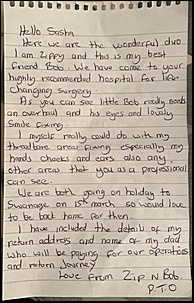 Hello Sasha
Here we are the wonderful duo
I am Zippy and this is my best
friend Bob. We have come to your
highly recommended hospital for life
changing surgery.
As you can see little Bob really needs
an overhaul and his eyes and lovely
smile fixing.
I myself really could do with my
threadbare areas fixing especially my
hands cheeks and ears also any
other areas that you as a professional
can see.
We are both going on holiday to
Swanage on 15th march so would love
to be back home for then.
I have included the details of my
return address and name of my dad
who will be paying for our operations
and return journey
Love from Zip N Bob.
P.T.O